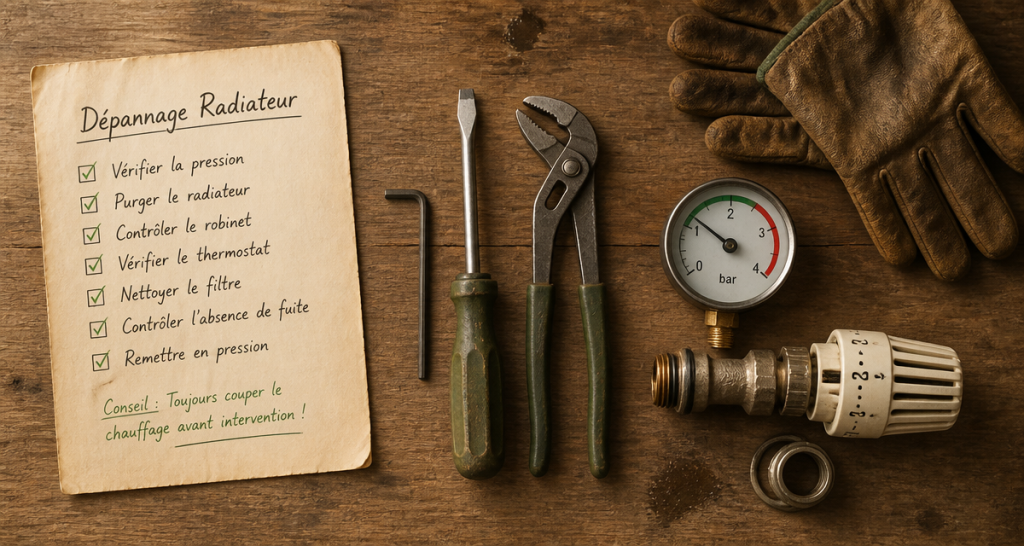 Dépannage Radiateur
Vérifier la pression
Purger le radiateur
Contrôler le robinet
Vérifier le thermostat
Nettoyer le filtre
Contrôler l'absence de fuite
Remettre en pression
Conseil : Toujours couper le
chauffage avant intervention !
0 1 2 3 4
bar